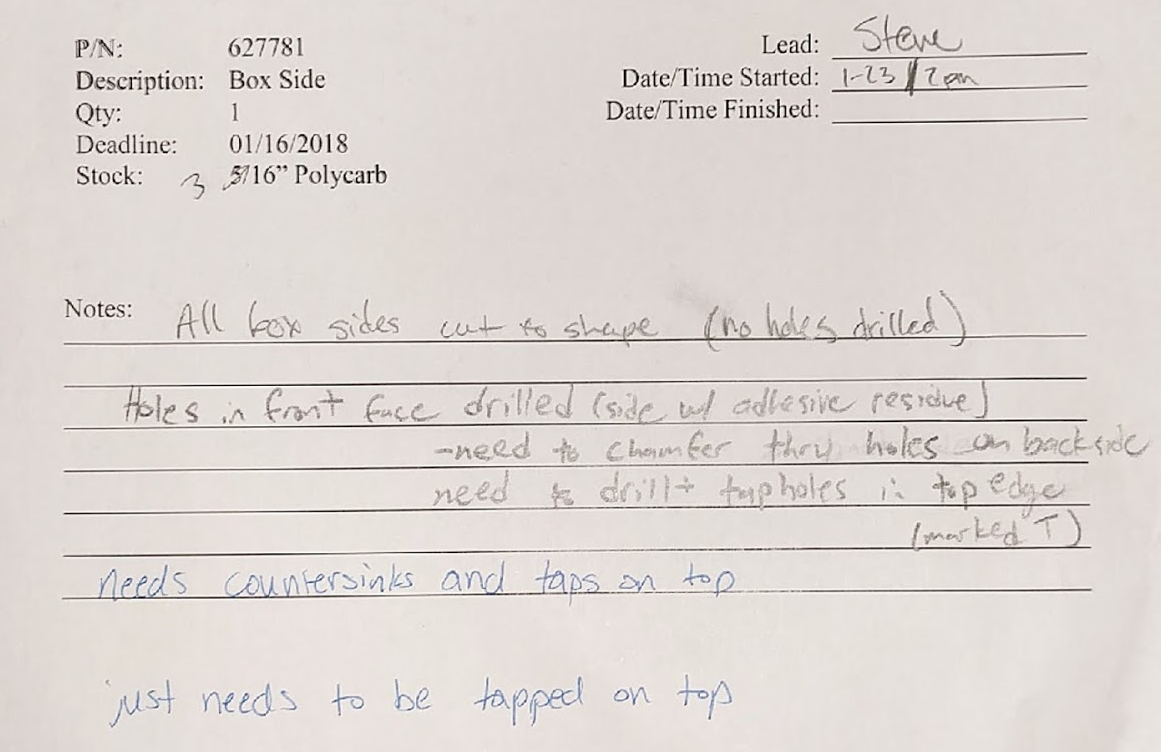 P/N: 627781
Description: Box Side
Qty: 1
Deadline: 01/16/2018
Stock: 3 5/16” Polycarb
Lead: Steve
Date/Time Started: 1-23 / 2pm
Date/Time Finished:
Notes: All box sides cut to shape (no holes drilled)
Holes in front face drilled (side w/ adhesive residue)
-need to chamfer thru holes on backside
need to drill + tap holes in top edge
(marked T)
needs countersinks and taps on top
just needs to be tapped on top